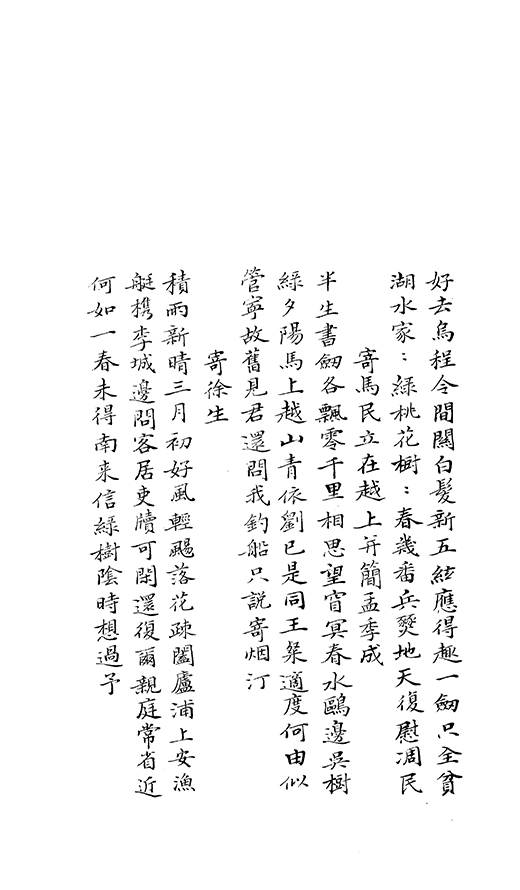 好去烏程令間關白髮新五絃應得趣一劒只全貧
湖水家：綠桃花樹：春幾番兵燹地天復慰凋民
寄馬民立在越上并簡孟季成
半生書劒各飄零千里相思望窅冥春水鷗邊吳樹
綠夕陽馬上越山青依劉已是同王粲適度何由似
管寧故舊見君還問我釣船只說寄烟汀
寄徐生
積雨新晴三月初好風輕颺落花疎闔廬浦上安漁
艇檇李城邊問客居吏牘可閑還復爾親庭常省近
何如一春未得南来信綠樹陰時想過予